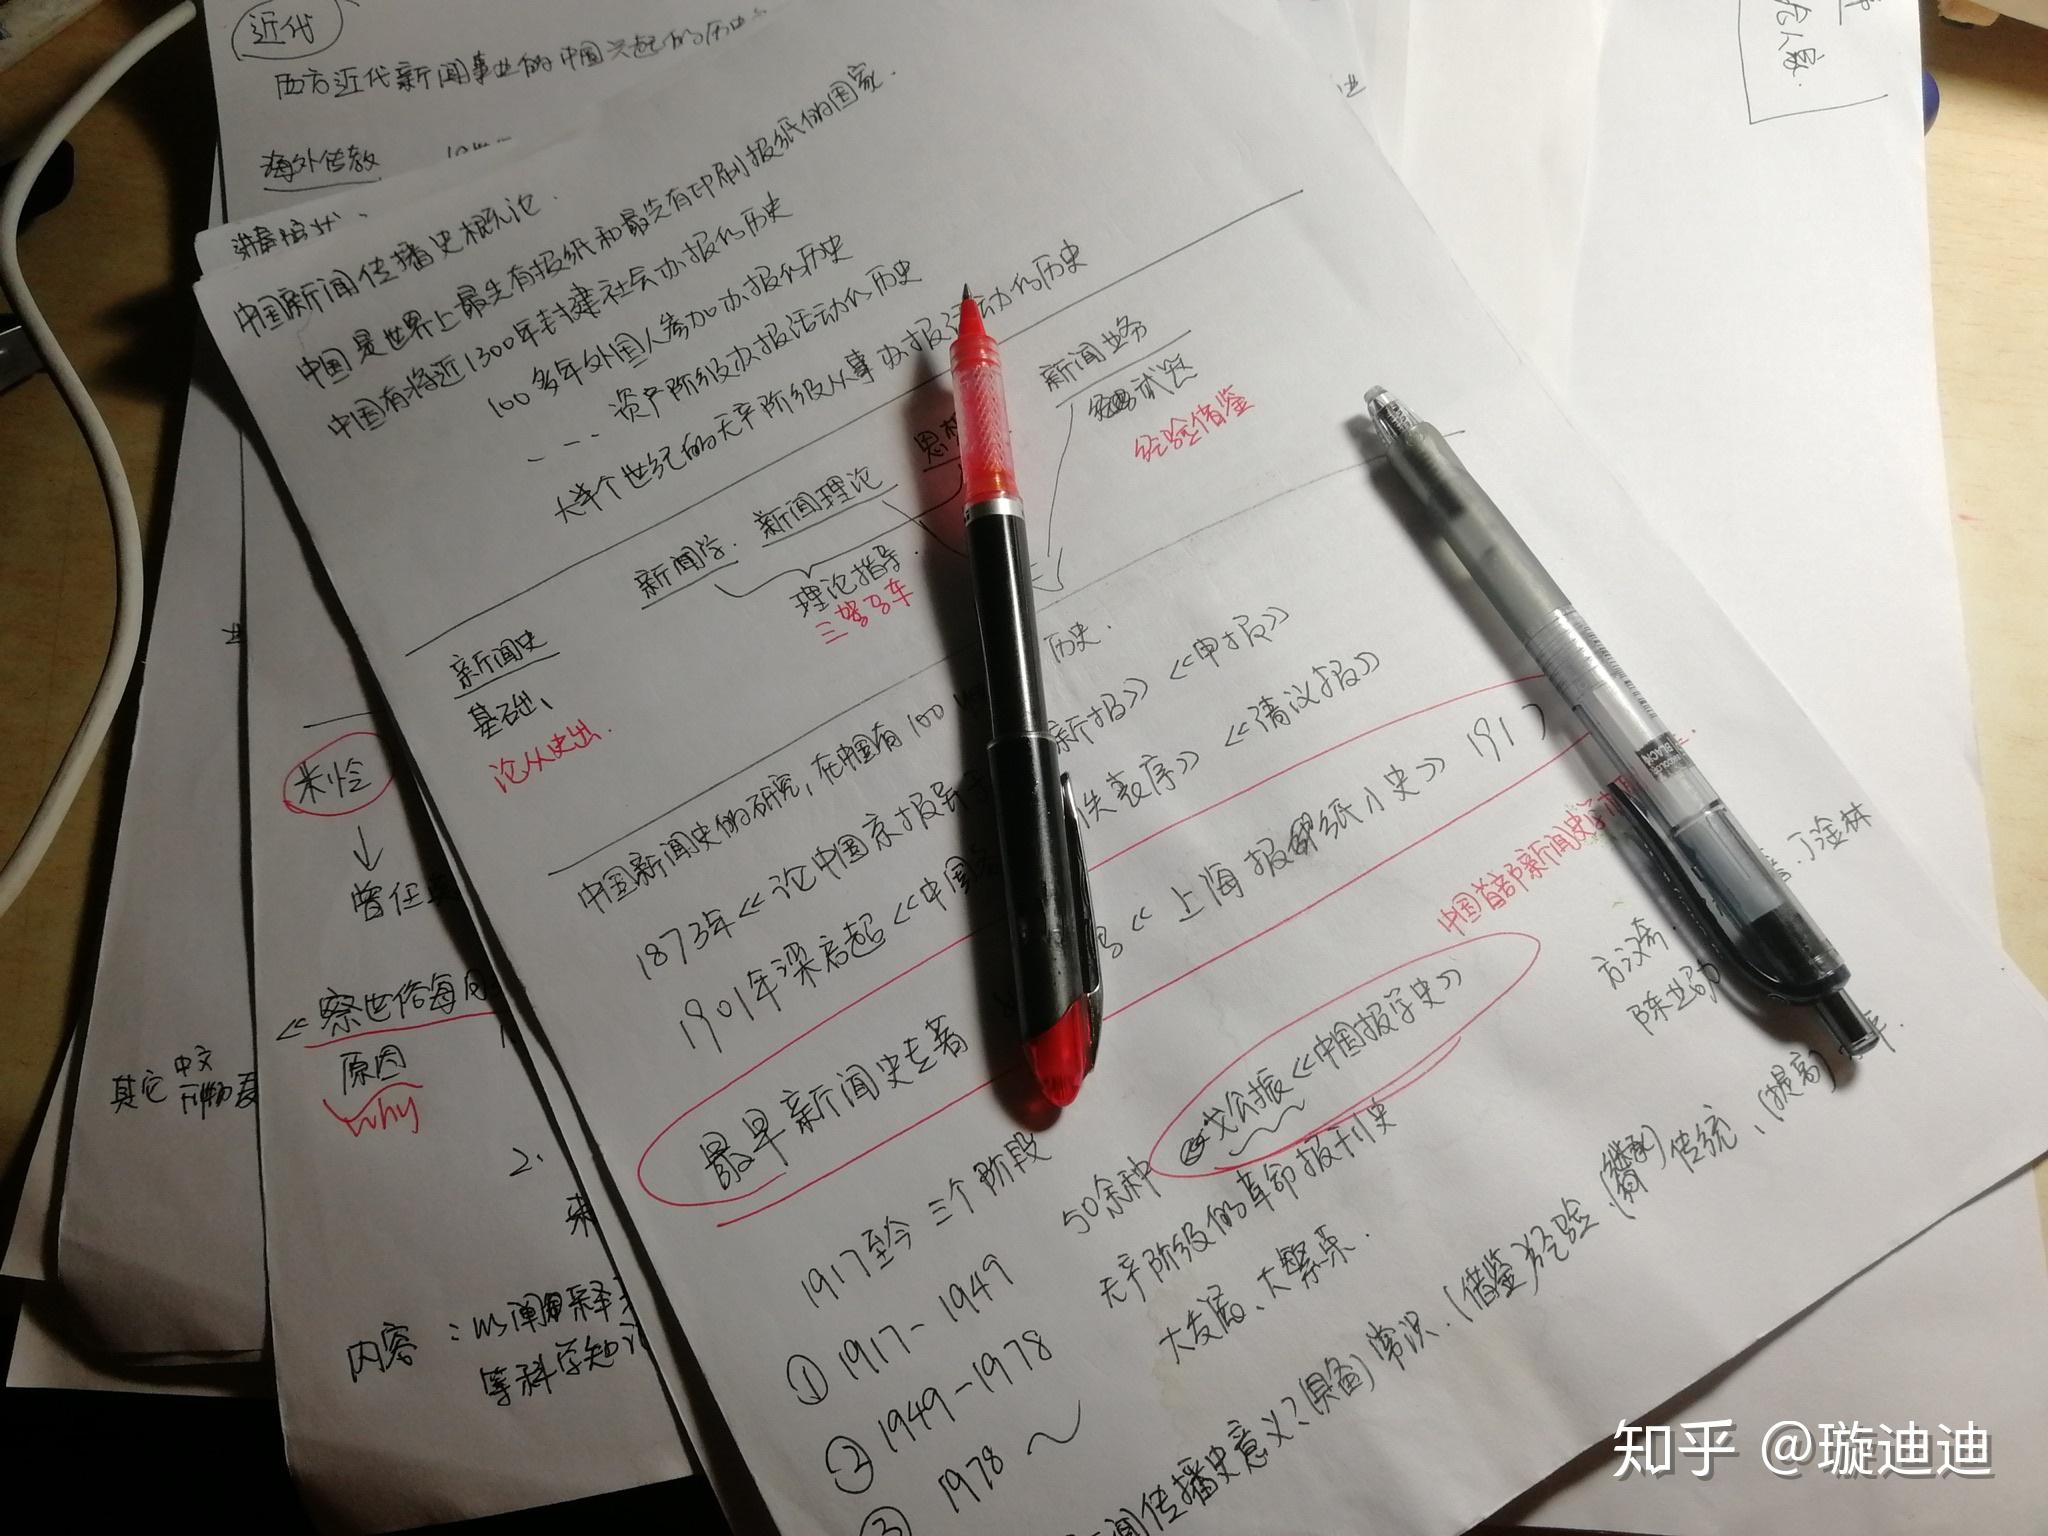 近代
西方近代新闻事业的中国兴起的历史
海外传教
中国新闻传播史概论.
中国是世界上最先有报纸和最先有印刷报纸的国家.
中国有将近1300年封建社会办报的历史
100多年外国人参加办报的历史
资产阶级办报活动的历史
大半个世纪的无产阶级从事办报活动的历史
新闻史
基础
论从史出.
新闻学. 新闻理论
理论指导
三驾马车
新闻业务
经验借鉴
历史.
中国新闻史的研究, 在中国有100
1873年《论中国京报异于 新报》《申报》
1901年梁启超《中国 》《清议报》
最早新闻史专著 《上海报纸小史》1917
中国首部新闻史
1917至今 三个阶段
① 1917-1949 50余种 戈公振《中国报学史》
② 1949-1978 无产阶级的革命报刊史
③ 1978~ 大发展、大繁荣.
传播史意义?(具备)常识.(借鉴)经验、 传统、(提高)
方汉奇
丁淦林
米怜
曾任
《察世俗每月
原因
why
其它中文刊物
2.
内容:以阐释
等科学知识
知乎 @璇迪迪